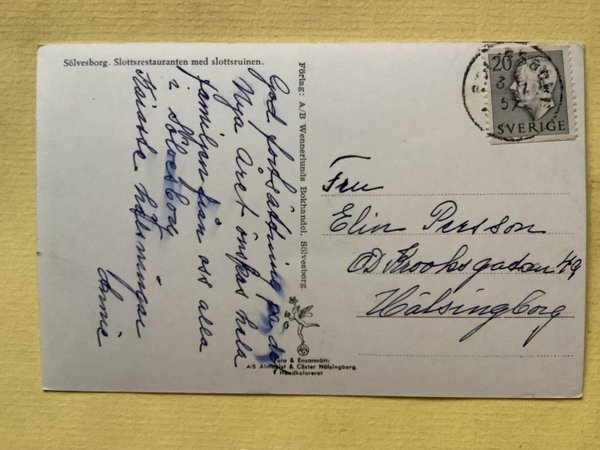 Sölvesborg. Slottsrestauranten med slottsruinen.
God fortsättning på det
Nya Året önskas hela
familjen från oss alla
i Sölvesborg
Käraste hälsningar
Annie
Förlag: A/B Wennerlunds Bokhandel, Sölvesborg.
20
SVERIGE
Fru
Elin Persson
OD Krooksgatan 49
Hälsingborg
Foto & Ensamrätt:
A/B Almquist & Cöster Hälsingborg.
Handkolorerat